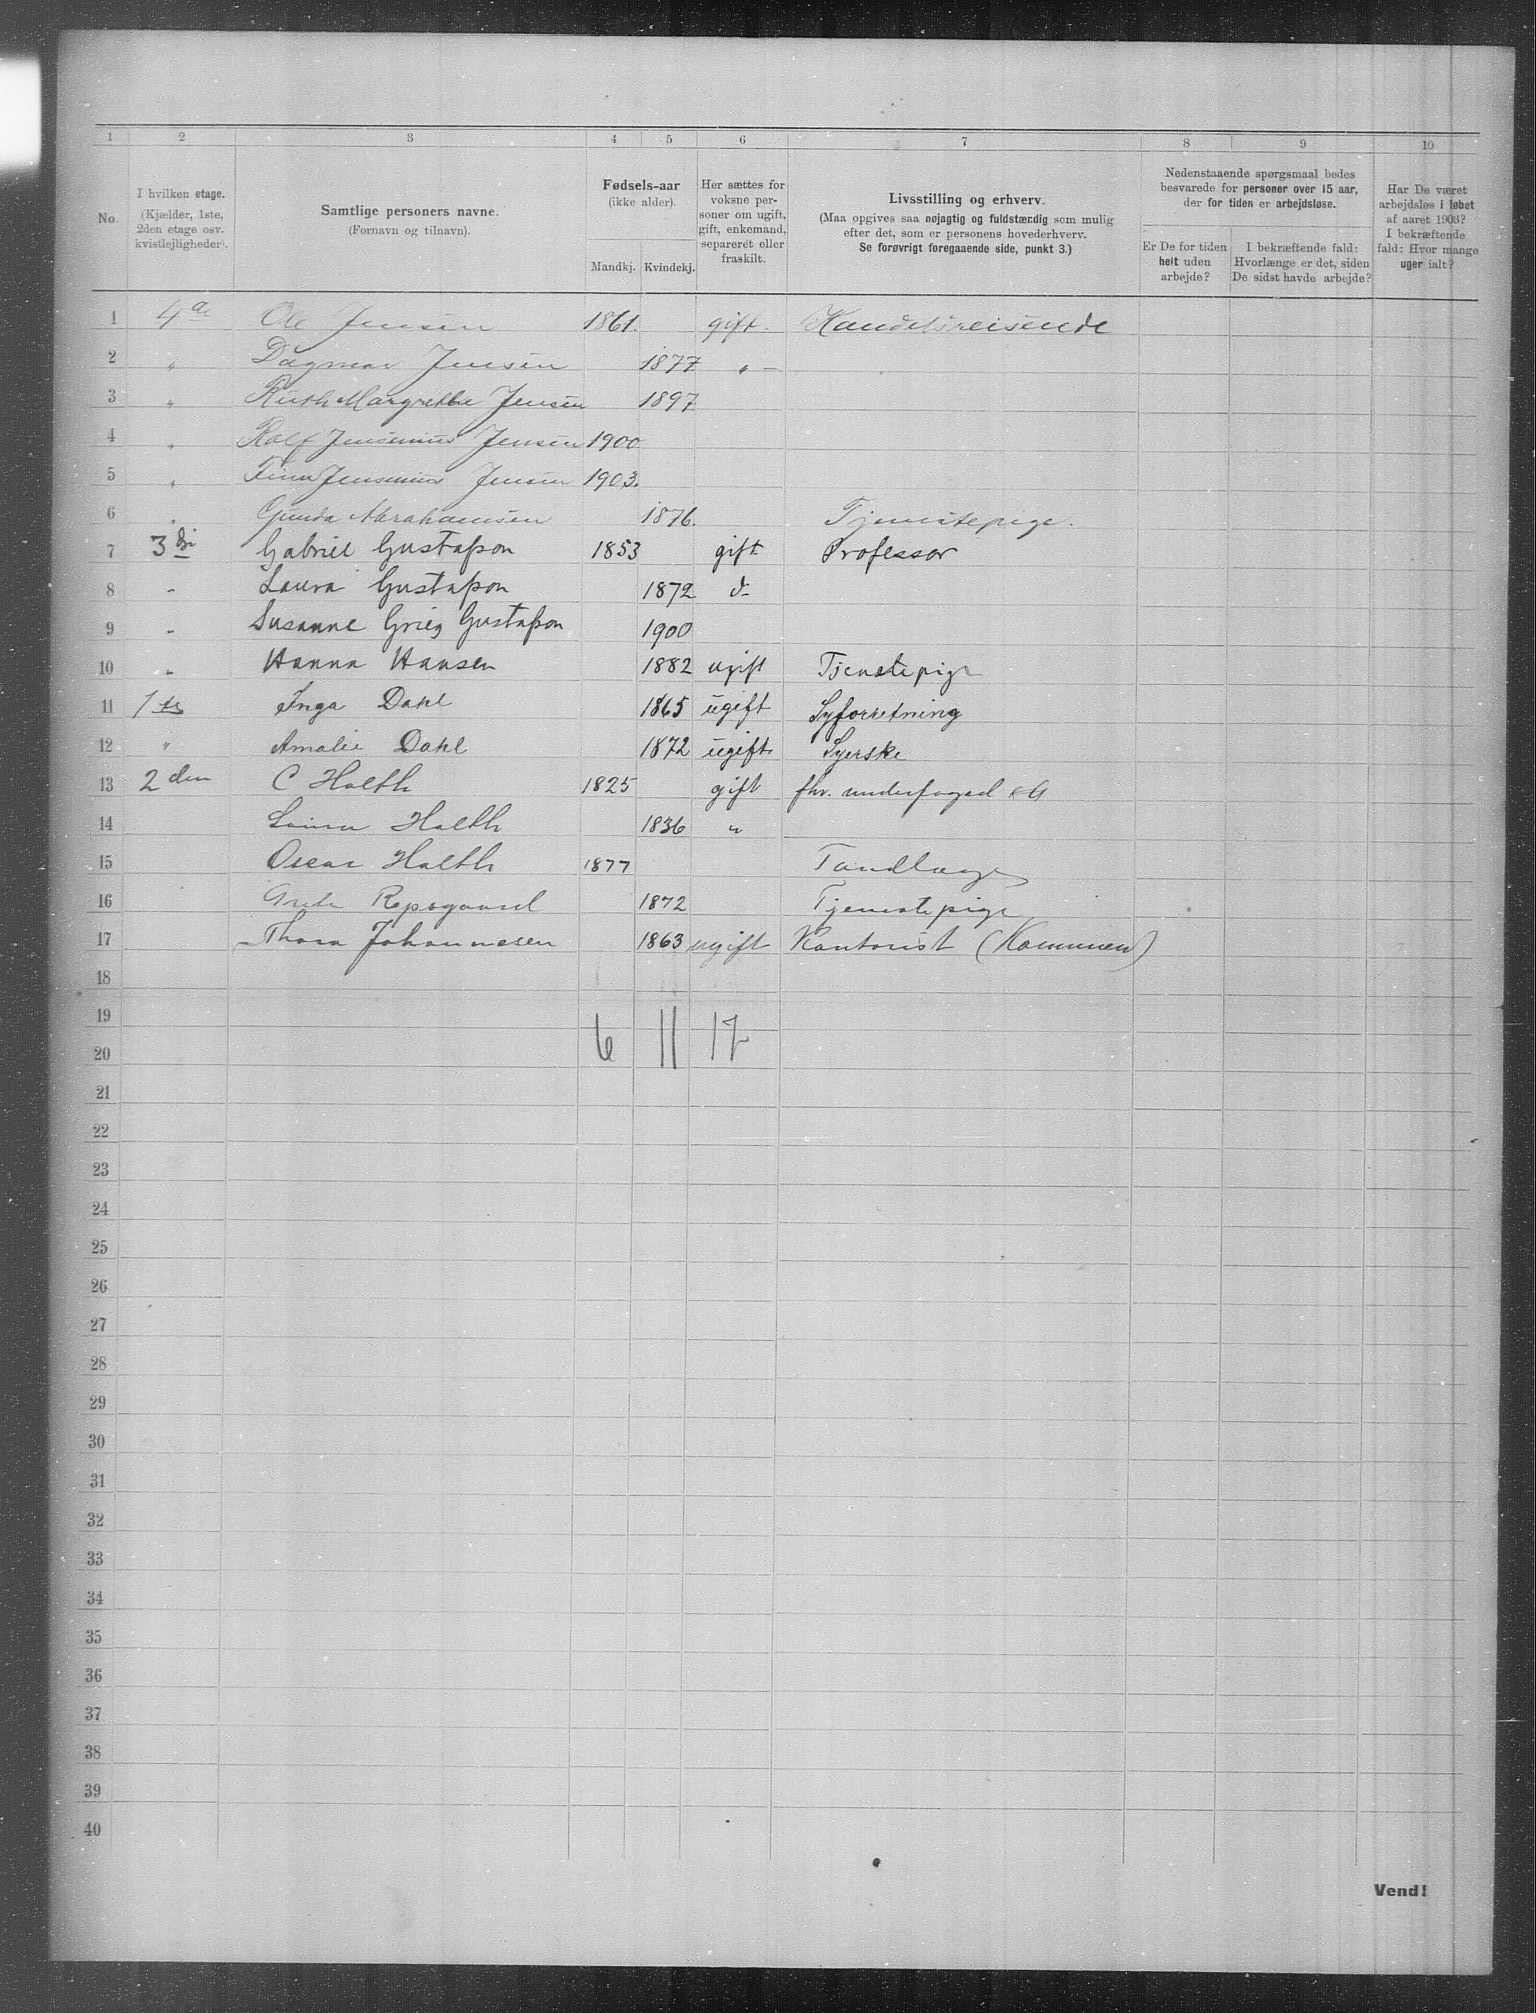 1 2 3 4 5 6 7 8 9 10
No.
I hvilken etage.
(Kjælder, 1ste,
2den etage osv.
kvistlejligheder).
Samtlige personers navne.
(Fornavn og tilnavn).
Fødsels-aar
(ikke alder).
Mandkj. Kvindekj.
Her sættes for
voksne per-
soner om ugift,
gift, enkemand,
separeret eller
fraskilt.
Livsstilling og erhverv.
(Maa opgives saa nøjagtig og fuldstændig som mulig
efter det, som er personens hovederhverv.
Se forøvrigt foregaaende side, punkt 3.)
Nedenstaaende spørgsmaal bedes
besvarede for personer over 15 aar,
der for tiden er arbejdsløse.
Er De for tiden
helt uden
arbejde?
I bekræftende fald:
Hvorlænge er det, siden
De sidst havde arbejde?
Har De været
arbejdsløs i løbet
af aaret 1903?
I bekræftende
fald: Hvor mange
uger ialt?
1 4de Ole Jensen 1861. gift. Handelsreisende
2 " Dagmar Jensen 1877 " –
3 " Ruth Margrethe Jensen 1897
4 " Rolf Jensenius Jensen 1900
5 " Finn Jensenius Jensen 1903.
6 " Gunda Abrahamsen 1876. Tjenestepige.
7 3die Gabriel Gustafson 1853 gift Professor
8 " Laura Gustafson 1872 d–
9 " Susanne Grieg Gustafson 1900
10 " Hanna Hansen 1882 ugift Tjenstepige
11 1ste Inga Dahl 1865 ugift Syforretning
12 " Amalie Dahl 1872 ugift Syerske
13 2den C Holth 1825 gift fhv. underfoged
14 Holth 1836 "
15 Oscar Holth 1877 Tandlæge
16 1872 Tjenestepige
17 Thora Johannesen 1863 ugift Kontorist (Kommunen)
18
19
6 11 17
20
21
22
23
24
25
26
27
28
29
30
31
32
33
34
35
36
37
38
39
40
Vend!